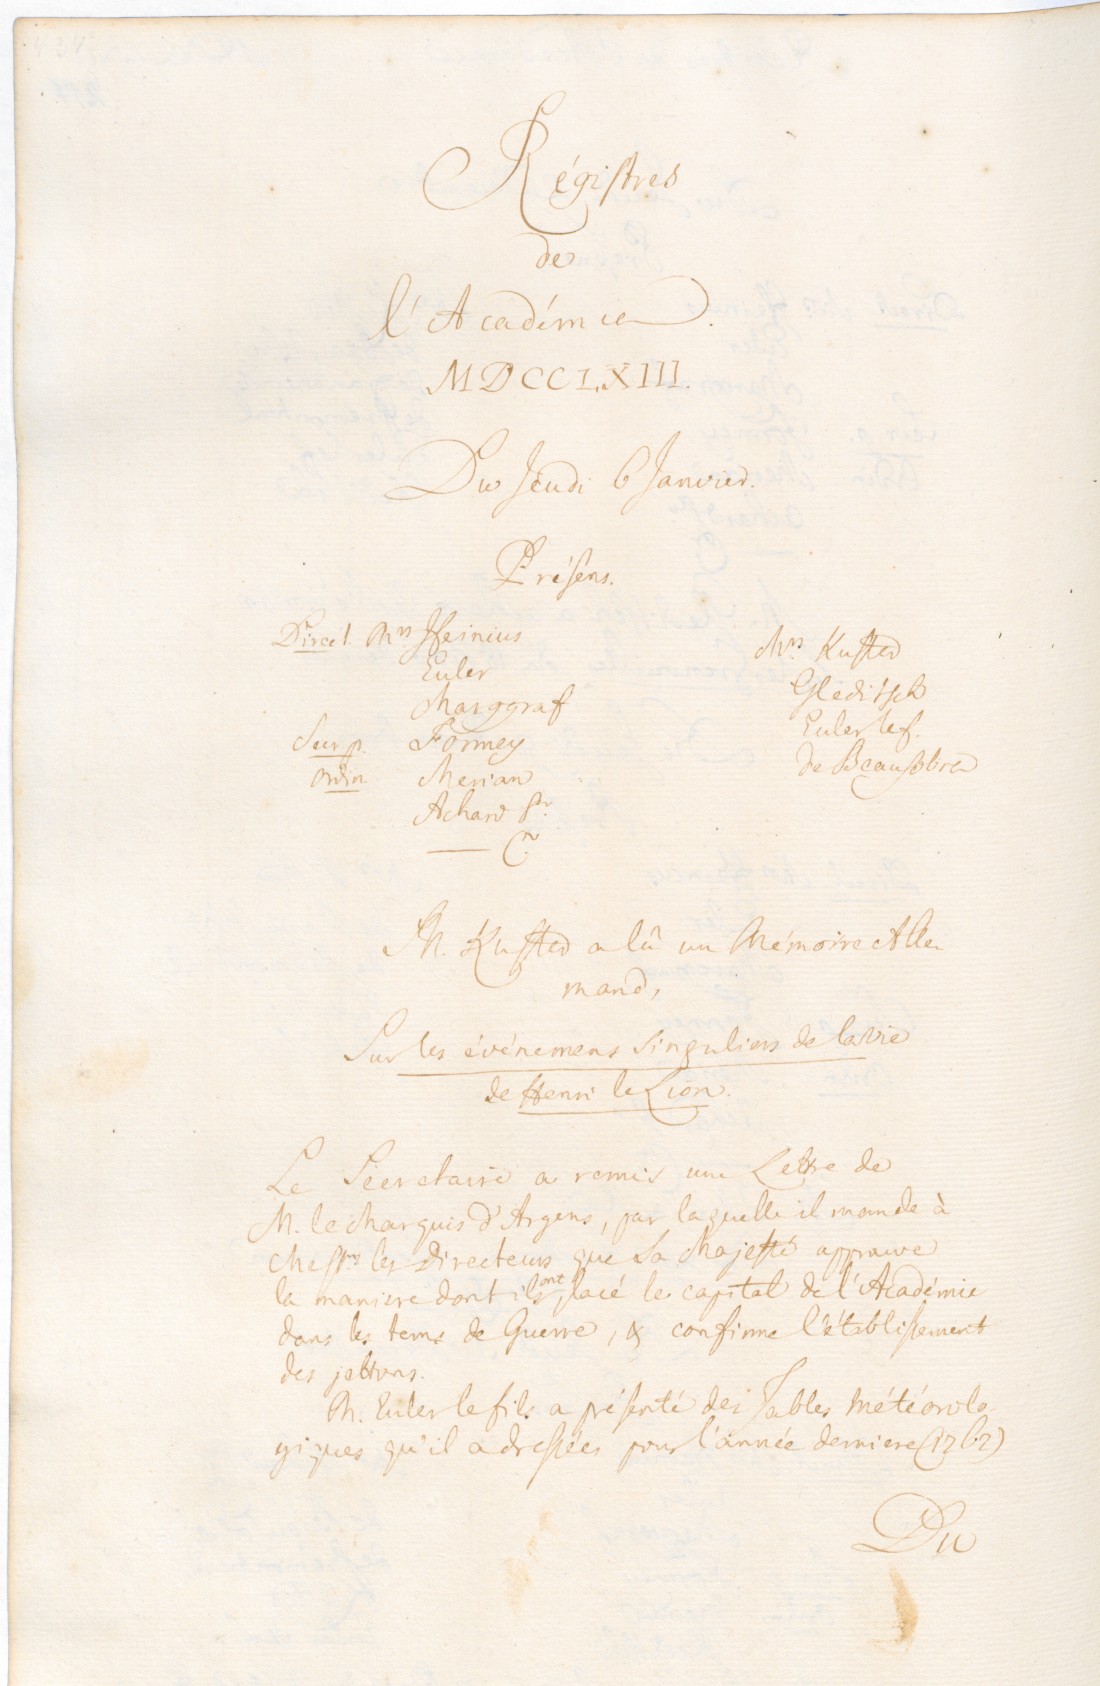 Régistres
de
l'Académie.
MDCCLXIII.
Du Jeudi 6 Janvier.
Présens.
Direct. Mrs Heinius
Euler
Marggraf
Secr. p. Formey
Ordin. Merian
Achard Sr.
— Cr.
Mrs. Kuster
Gleditsch
Euler le f.
de Beausobre
M. Kuster a lû un Mémoire Alle
mand,
Sur les événemens singuliers de la vie
de Henri le Lion.
Le Sécretaire a remis une Lettre de
M. le Marquis d'Argens, par laquelle il mande à
Messrs les Directeurs que Sa Majesté approuve
la maniere dont ils ont placé le capital de l'Académie
dans les tems de Guerre, & confirme l'établissement
des jettons.
M. Euler le fils a présenté des Tables Météorolo
giques qu'il a dressées pour l'année derniere (1762)
Du